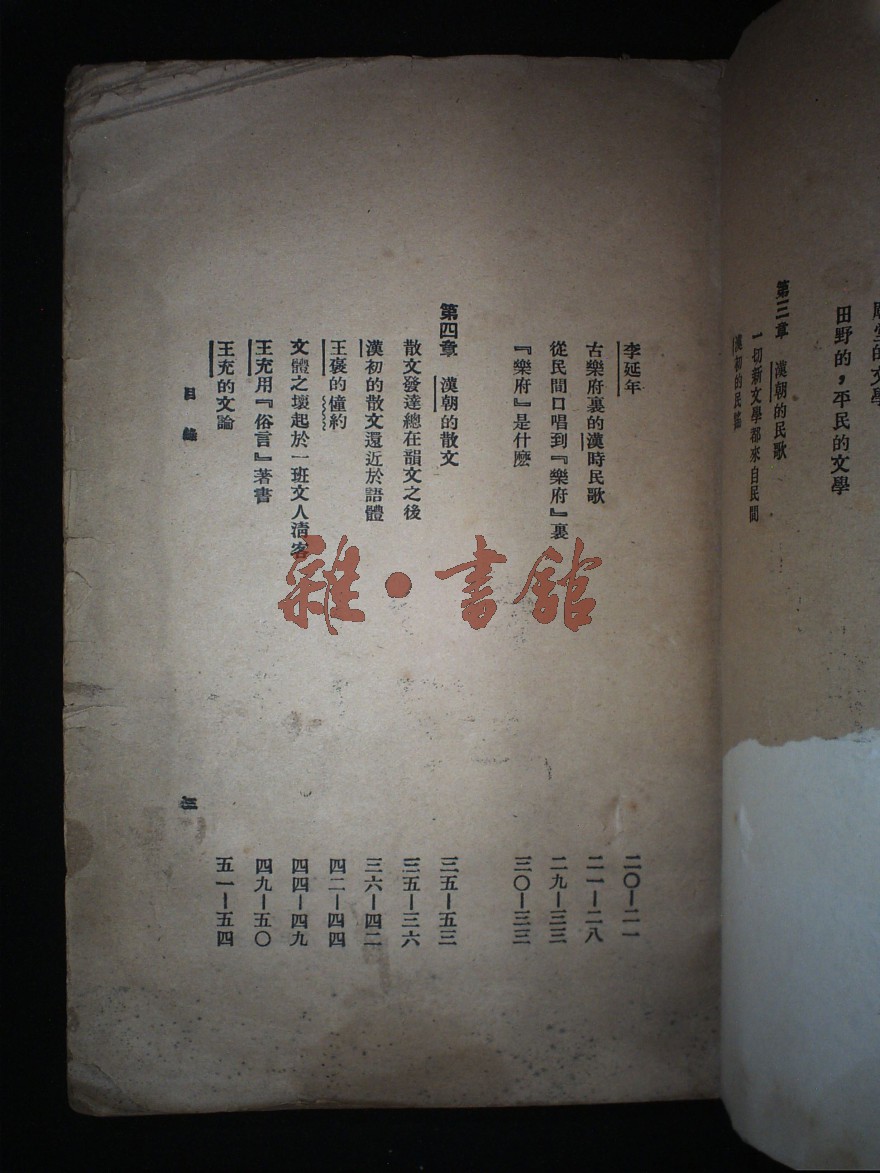 田野的，平民的文學
第三章　漢朝的民歌
一切新文學都來自民間
漢初的民謠
李延年　二〇—二一
古樂府裏的漢時民歌　二一—二八
從民間口唱到『樂府』裏　二九—三三
『樂府』是什麽　三〇—三三
第四章　漢朝的散文　三五—五三
散文發達總在韻文之後　三五—三六
漢初的散文還近於語體　三六—四二
王褒的僮約　四二—四四
文體之壞起於一班文人清客　四四—四九
王充用『俗言』著書　四九—五〇
王充的文論　五一—五四
目錄　三
雜·書館